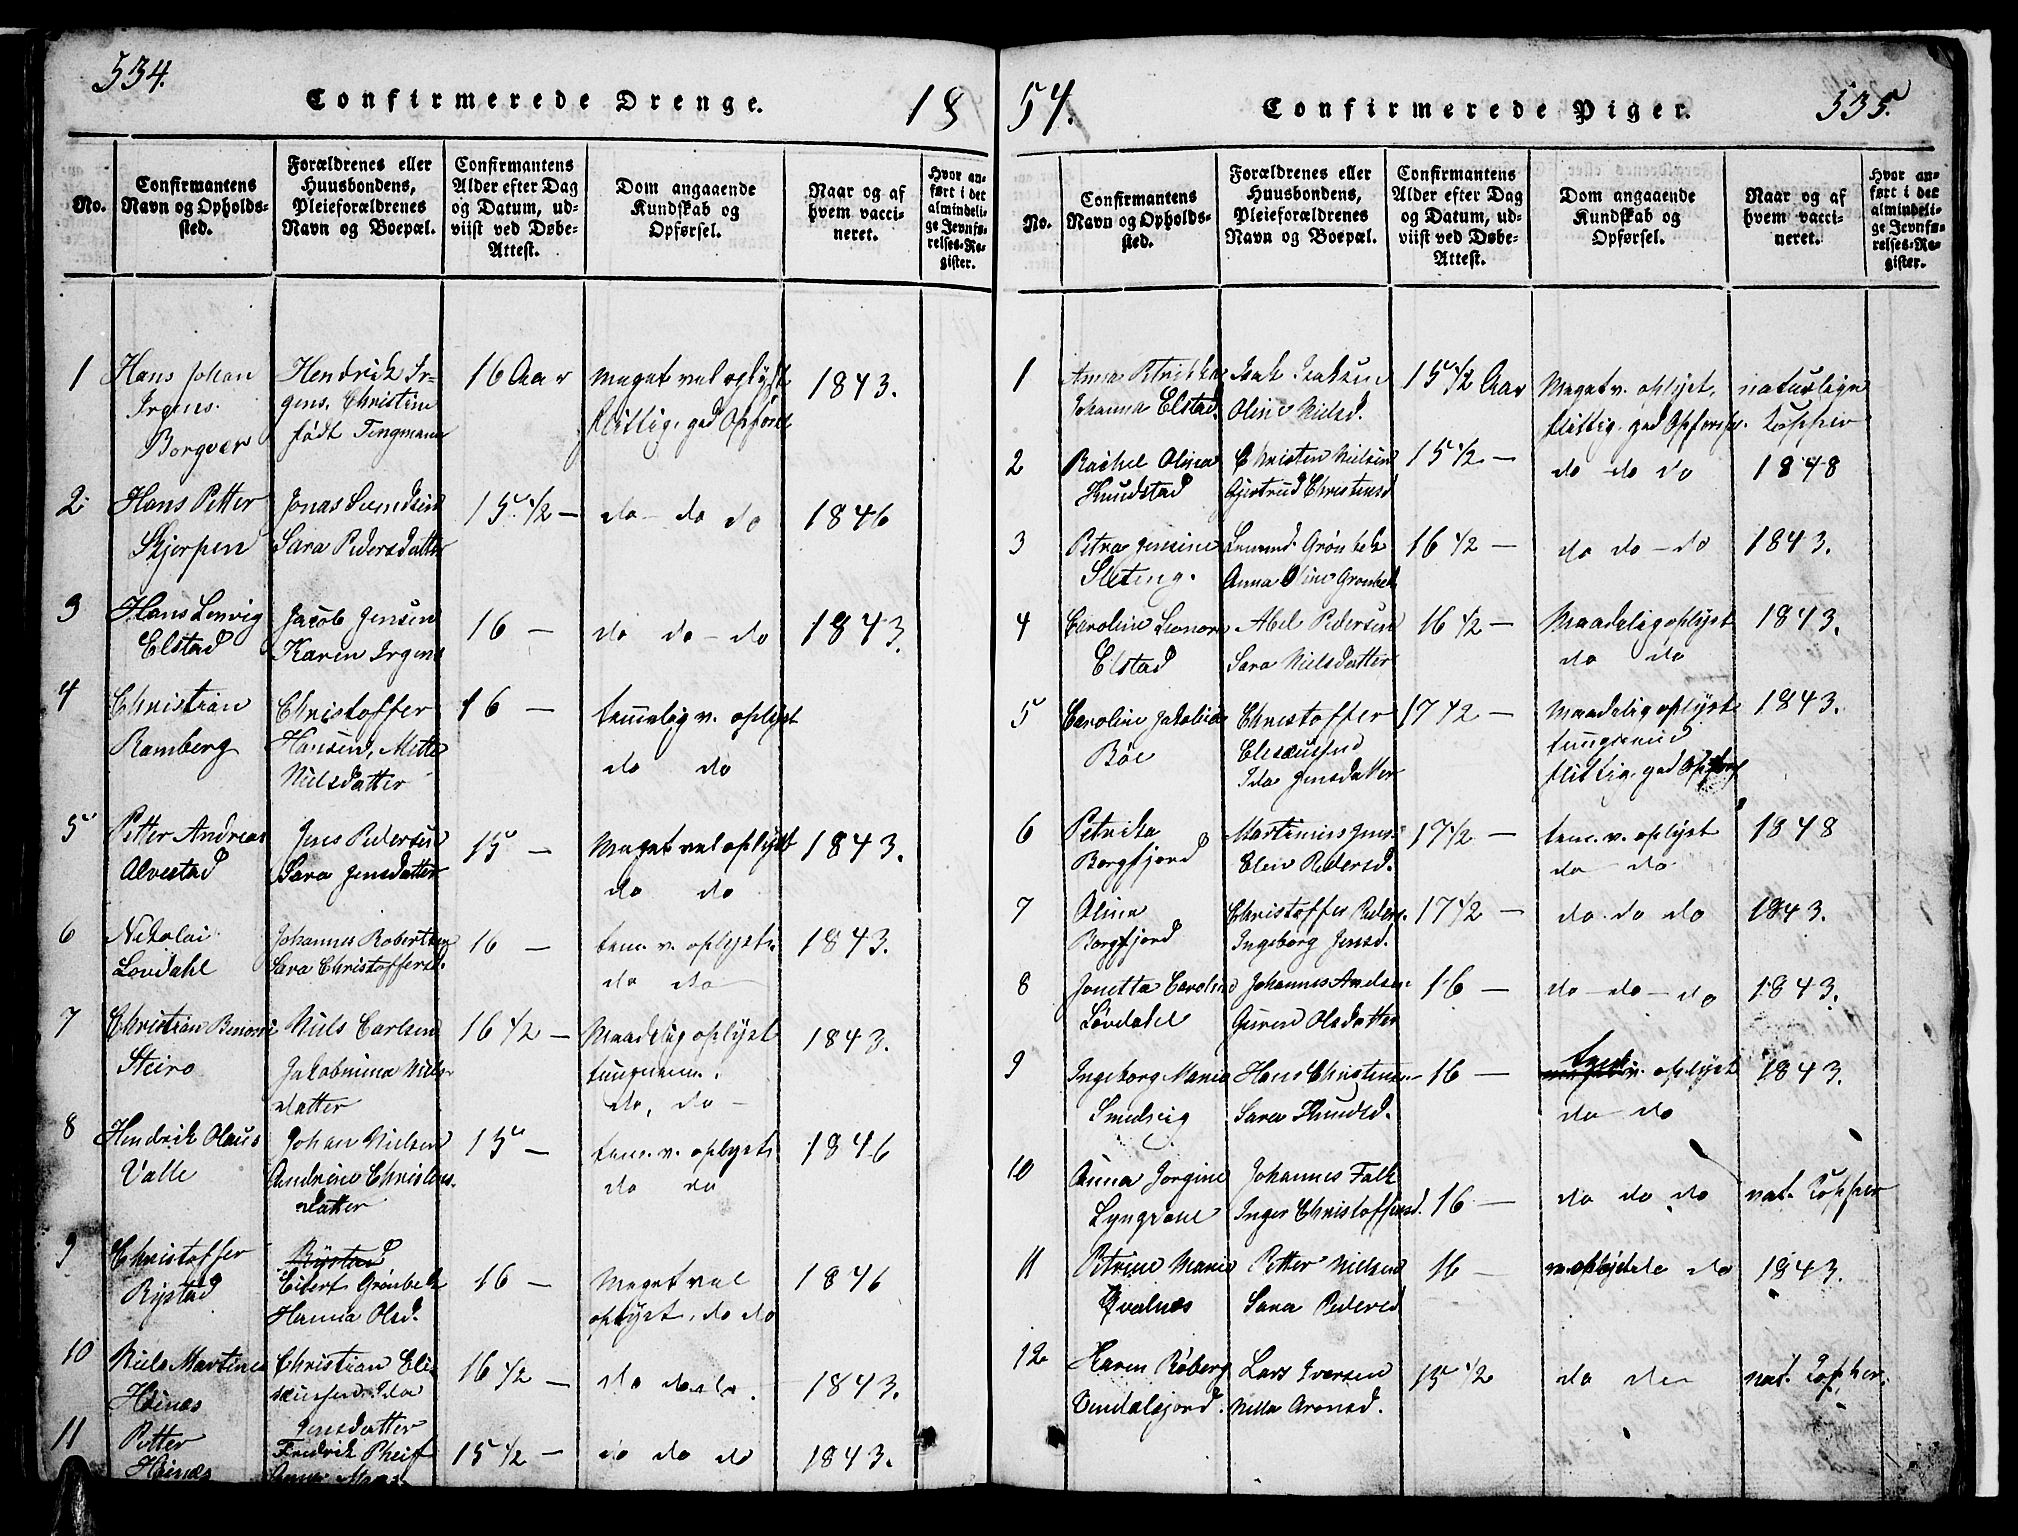 534.
Confirmerede Drenge.
18
No.
Confirmantens
Navn og Opholds-
sted.
Forældrenes eller
Huusbondens,
Pleieforældrenes
Navn og Boepæl.
Confirmantens
Alder efter Dag
og Datum, ud-
viist ved Døbe-
Attest.
Dom angaaende
Kundskab og
Opførsel.
Naar og af
hvem vacci-
neret.
Hvor an-
ført i det
almindeli-
ge Jevnfø-
relses-Re-
gister.
1
Hans Johan
Irgens.
Borgvær
Hendrik Ir-
gens, Christine
født Tingmann
16 Aar
Meget vel oplyst
flittig, god Opførsel
1843.
2
Hans Petter
Skjerpen
Jonas
Sara Pedersdatter
15 1/2 —
do — do do
1846
3
Hans Lenvig
Elstad
Jacob Jensen
Karen Irgens
16 —
do do — do
1843.
4
Christian
Ramberg
Christoffer
Hansen, Mette
Nielsdatter
16 —
temelig v. oplyst
do do
5
Petter Andreas
Alvestad
Jens Pedersen
Sara Jensdatter
15 —
Meget vel oplyst
do do
1843.
6
Nikolai
Lovdahl
Johannes Robertsen
Sara Christoffersd.
16 —
tem. v. oplyst.
do do
1843.
7
Christian Benoni
Steiro
Niels Carlsen
Jakobmina Niels-
datter
16 1/2 —
Maadelig oplyst
tungnem.
do, do —
1843.
8
Hendrik Olaus
Valle
Johan Nielsen
Andrine Christens-
datter
15 —
tem. v. oplyst.
do do
1846
9
Christoffer
Rystad
Rystad
Eilert Grønbek
Hanna Olsd.
16 —
Meget vel
oplyst, do do
1846
10
Niels Martines
Høinæs
Christian Eli-
sæussen, Ida
Jensdatter
16 1/2 —
do do do.
1843.
11
Petter
Høinæs
Fredrik Pheif
15 1/2 —
do do do
1843.
54.
Confirmerede Piger.
535.
No.
Confirmantens
Navn og Opholds-
sted.
Forældrenes eller
Huusbondens,
Pleieforældrenes
Navn og Boepæl.
Confirmantens
Alder efter Dag
og Datum, ud-
viist ved Døbe-
Attest.
Dom angaaende
Kundskab og
Opførsel.
Naar og af
hvem vacci-
neret.
Hvor an-
ført i det
almindeli-
ge Jevnfø-
relses-Re-
gister.
1
Anna Petrikka
Johanna Elstad.
Isak Isaksen
Oline Nielsd.
15 1/2 Aar
Meget v. oplyst,
flittig, god Opførsel.
naturlige
Kopper
2
Rachel Olina
Knudstad
Christen Nielsen
Gjertrud Christensd
15 1/2 —
do — do do
1848
3
Petra Jensine
Sleting.
Grønbek
Anna Oline Grønbek
16 1/2 —
do do — do
1843.
4
Caroline Leonore
Elstad
Abel Pedersen
Sara Nielsdatter
16 1/2 —
Maadelig oplyst
do do
1843.
5
Caroline Jakobine
Böe
Christoffer
Elisæussen
Ida Jensdatter
17 1/2 —
Maadelig oplyst
tungnem
flittig, god Opførsel
1843.
6
Petrika
Borgfjord
Martinius Jens-
Elen Pedersd.
17 1/2 —
tem. v. oplyst
do — do
1848
7
Olina
Borgfjord
Christoffer Peders.
Ingeborg Jensd.
17 1/2 —
do do do
1843.
8
Jonetta Caroline
Løvdahl
Johannes Andsen
Guren Olsdatter
16 —
do — do — do
1843.
9
Ingeborg Maria
Smedvig
Hans Christensen
Sara Knudsd.
16 —
tem. v. oplyst
do — do
1843.
10
Anna Jorgine
Lyngvær
Johannes Falk
Inger Christoffersd.
16 —
do do do
nat. Kopper
11
Petrine Marie
Kvalnæs
Petter Nielsen
Sara Pedersd
16 —
do do
1843.
12
Karen Röberg
Lars Iversen
Nilla Aronsd.
15 1/2
do do
nat. Kopper.